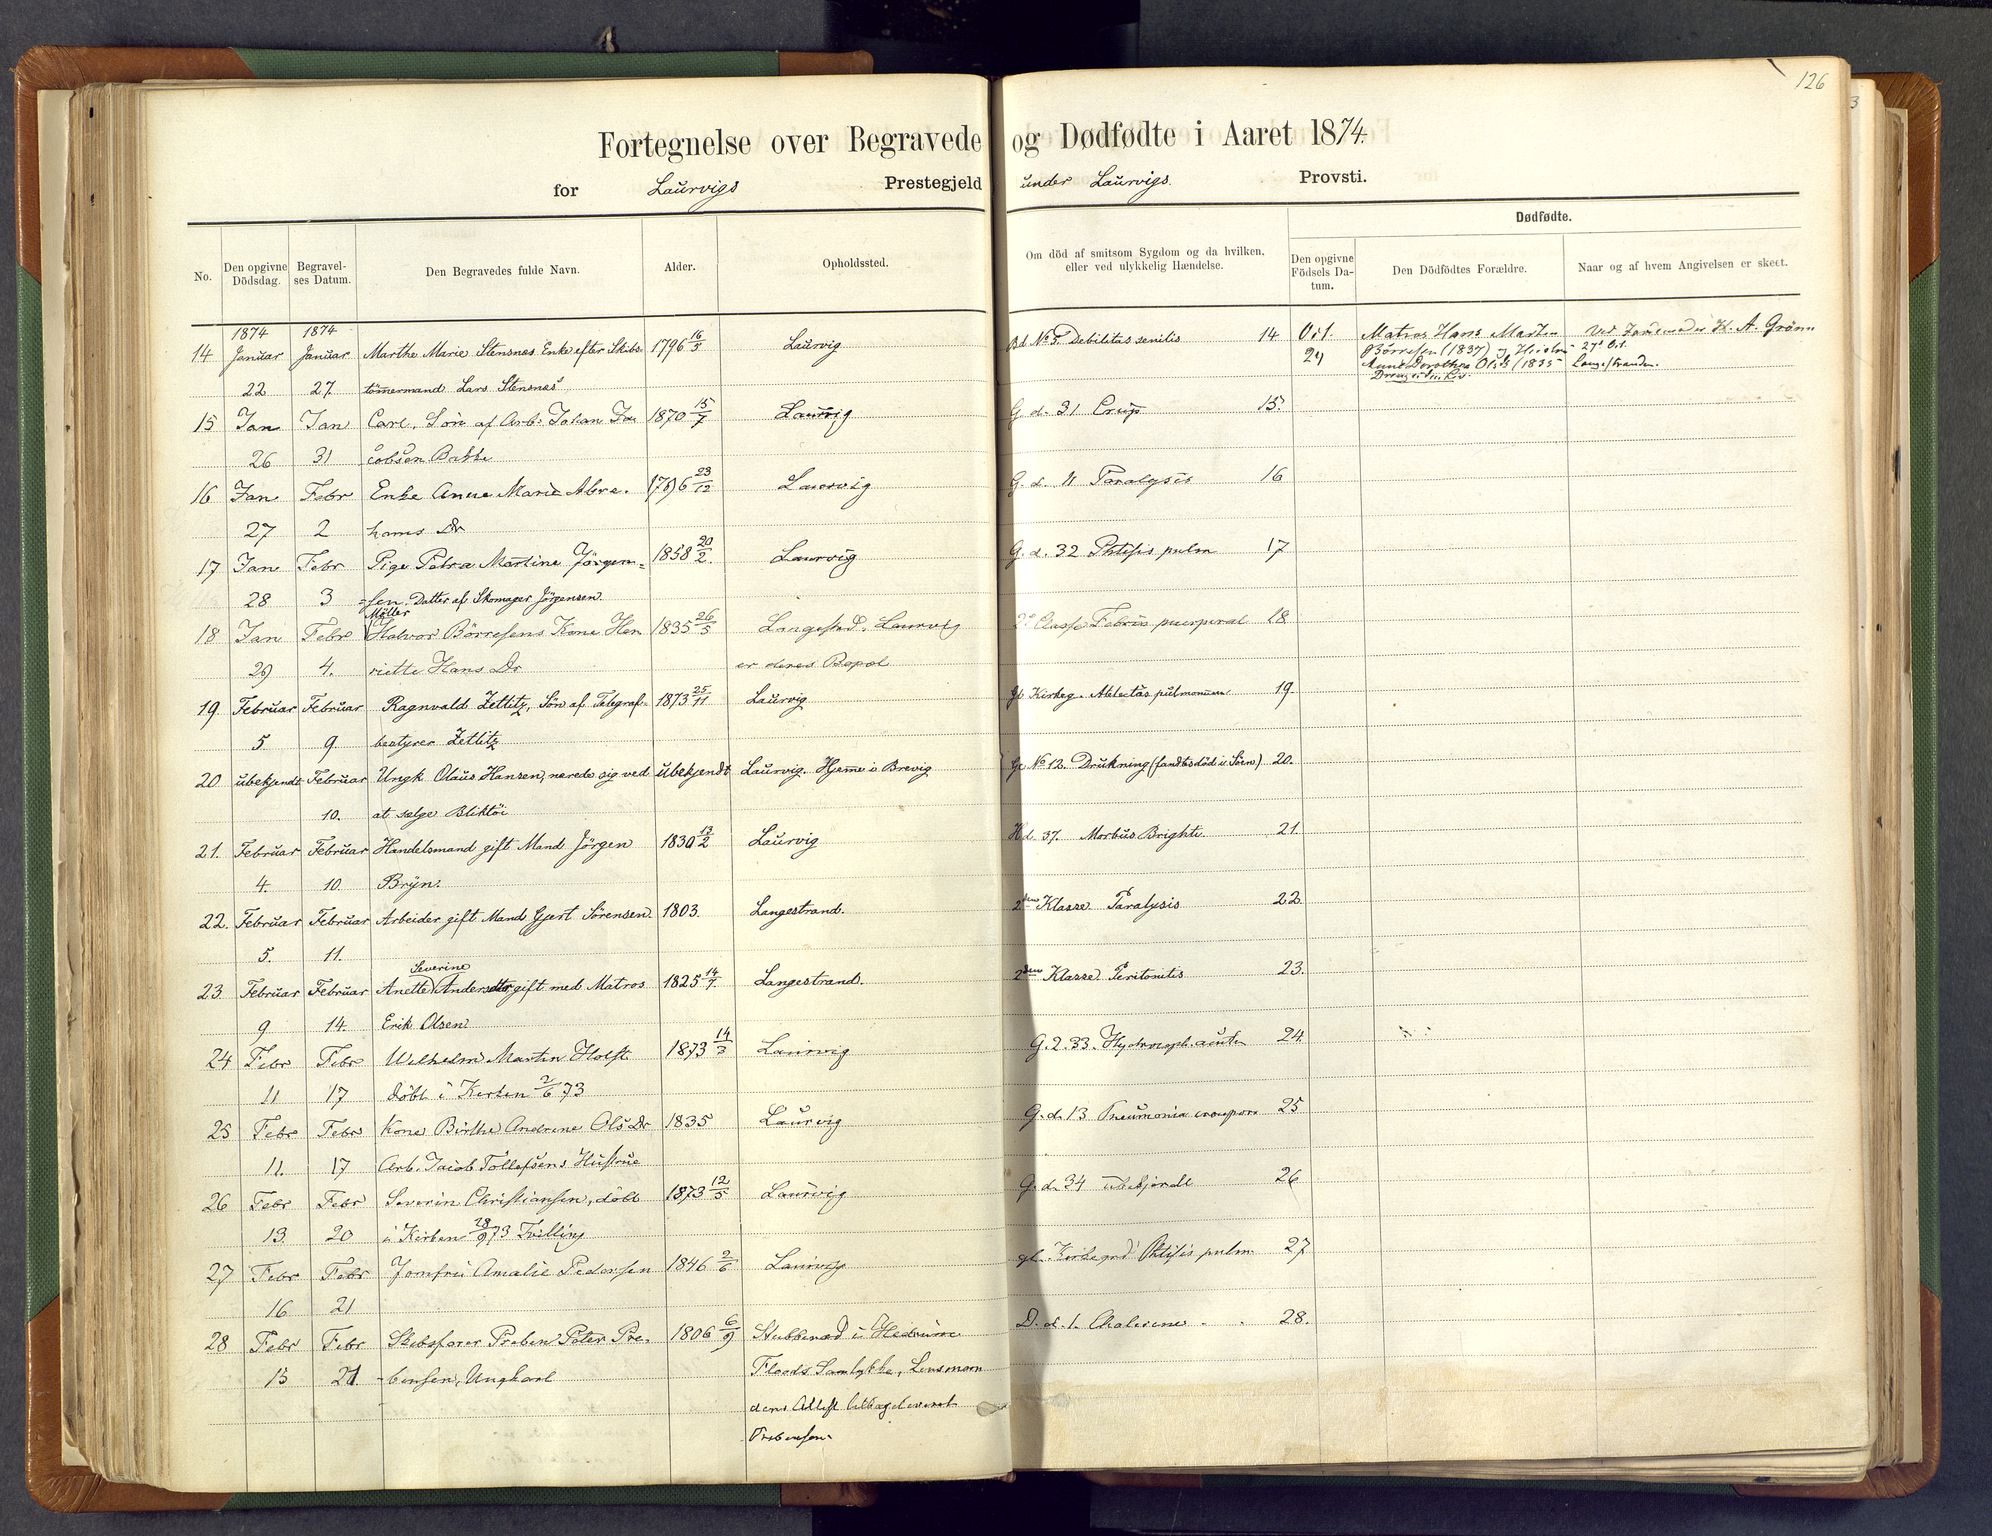 126
Fortegnelse over Begravede og Dødfødte i Aaret 1874.
for Laurvigs Prestegjeld under Laurvigs Provsti.
No.
Den opgivne Dödsdag.
Begravelses Datum.
Den Begravedes fulde Navn.
Alder.
Opholdssted.
Om död af smitsom Sygdom og da hvilken, eller ved ulykkelig Hændelse.
Dødfødte.
Den opgivne Födsels Datum.
Den Dödfödtes Forældre.
Naar og af hvem Angivelsen er skeet.
1874 1874
14 Januar Januar Marthe Marie Stensnæs Enke efter Skibs- 1796 16/5 Laurvig Bd No 5. Debilitas senilis 14 Oct. Matros Hans Martin Ved H. A. Grönn
22 27. tömermand Lars Stensnæs 29 Börresen (1837) og Hustru 27 Oct.
Anne Dorothea Olsd (1835 Langestranden.
15 Jan Jan Carl, Sön af Arb. Johan Ja 1870 15/7 Laurvig G. d. 31 Crup 15.
26 31 cobsen Bakke
16 Jan Febr Enke Anne Marie Abra. 1796 23/12 Laurvig G. d. 11 Paralysis 16
27 2 hams Dr
17 Jan Febr Pige Petra Martine Jörgen- 1858 20/2. Laurvig G. d. 32 Phtisis pulm 17
28 3 -sen. Datter af Skomager Jörgensen.
Möller
18 Jan Febr Halvor Börresens Kone Hen 1835 26/5 Langestrd. Laurvig 2d Classe Febris puerperal 18
29 4. riette Hans Dr er deres Bopæl
19. Februar Februar Ragnvald Zetlitz, Sön af Telegraf- 1873 25/11 Laurvig Gl Kirkeg. Atelectas pulmonum 19.
5 9. bestyrer Zetlitz
20 ubekjendt Februar Ungk Olaus Hansen, nærede sig ved ubekjendt Laurvig. Hjeme i Brevig Gc No 12. Drukning (fandtes död i Söen) 20.
10. at sælge Bliktöi
21. Februar Februar Handelsmand gift Mand Jörgen 1830 13/2 Laurvig Hd 37. Morbus Brighti. 21.
4. 10. Bryn.
22. Februar Februar Arbeider gift Mand Gjert Sörensen 1803. Langestrand. 2den Klasse Paralysis 22.
5. 11.
Severine
23. Februar Februar Anette Andersdtr gift med Matros 1825 14/7 Langestrand. 2den Klasse Peritonitis 23.
9 14. Erik Olsen
24 Febr Febr Wilhelm Martin Holst 1873 14/3 Laurvig G. 2. 33. Hydroceph. acutus 24.
11 17 döbt i Kirken 2/6 73
25 Febr Febr Kone Birthe Andrine Ols Dr 1835 Laurvig G. d. 13 Pneumonia crouposa 25
11. 17 Arb. Jacob Tollefsens Hustrue
26 Febr Febr Severin Christiansen, döbt 1873 12/5 Laurvig G. d. 34 ubekjendt 26
13. 20 i Kirken 28/9 73 Tvilling
27 Febr Febr Jomfru Amalie Pedersen 1846 2/6 Laurvig gl. Kirkegrd Phtisis pulm 27
16 21
28 Febr Febr Skibsförer Preben Peter Pre- 1806 6/9 Stubberød i Hedrum D. d. 1. 28.
13 21 -bensen, Ungkarl Floods Samlykke, Lensmann
dens Attest tilbageleveret
Prebensen.